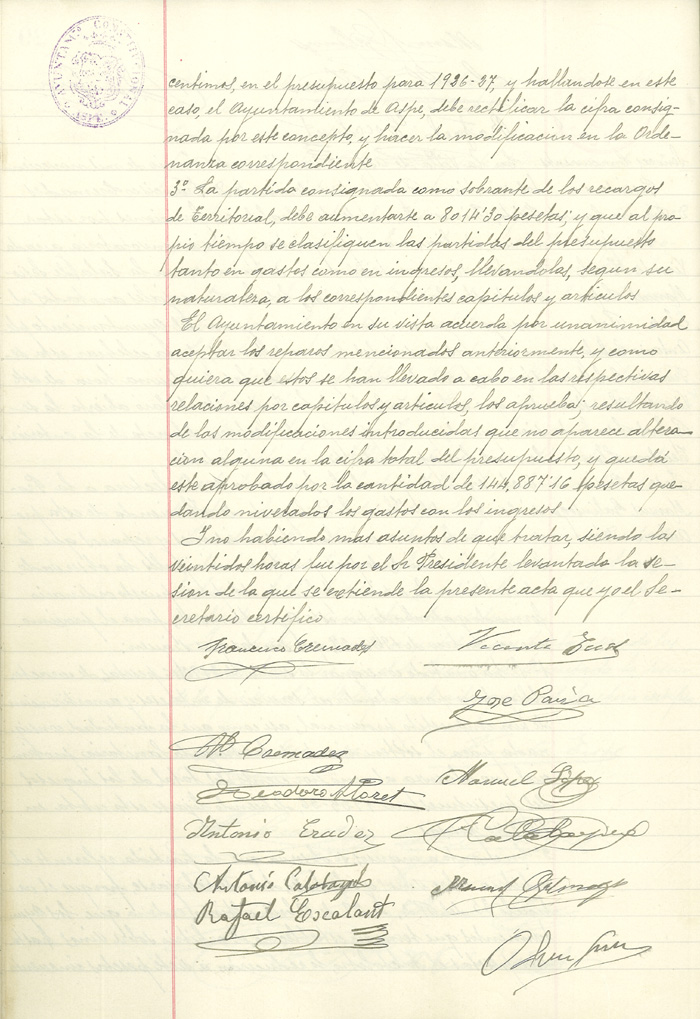 AYUNTAMTº CONSTITUCIONAL
ASPE
centimos, en el presupuesto para 1926-37, y hallandose en este
caso, el Ayuntamiento de Aspe, debe rectificar la cifra consig-
nada por este concepto, y hacer la modificacion en la Orde-
nanza correspondiente
3º La partida consignada como sobrante de los recargos
de Territorial, debe aumentarte a 8014'30 pesetas; y que al pro-
pio tiempo se clasifiquen las partidas del presupuesto
tanto en gastos como en ingresos, llevandolas, segun su
naturalera, a los correspondientes capitulos y articulos
El Ayuntamiento en su vista acuerda por unanimidad
aceptar los reparos mencionados anteriormente, y como
quiera que estos se han llevado a cabo en las respectivas
relaciones por capitulos y articulos, los aprueba; resultando
de las modificaciones introducidas que no aparece altera-
cion alguna en la cifra total del presupuesto, y queda
este aprobado por la cantidad de 144.887'16 pesetas que-
dando nivelados los gastos con los ingresos
I no habiendo mas asuntos de que tratar, siendo las
veintidos horas fue por el Sr Presidente levantada la se-
sion de la que se extiende la presente acta que yo el Se-
cretario certifico
Francisco Cremades Vicente
Jose
Mº Cremades
Teodoro Alloret Manuel López
Antonio
Antonio Calatayud Manuel
Rafael Escalant